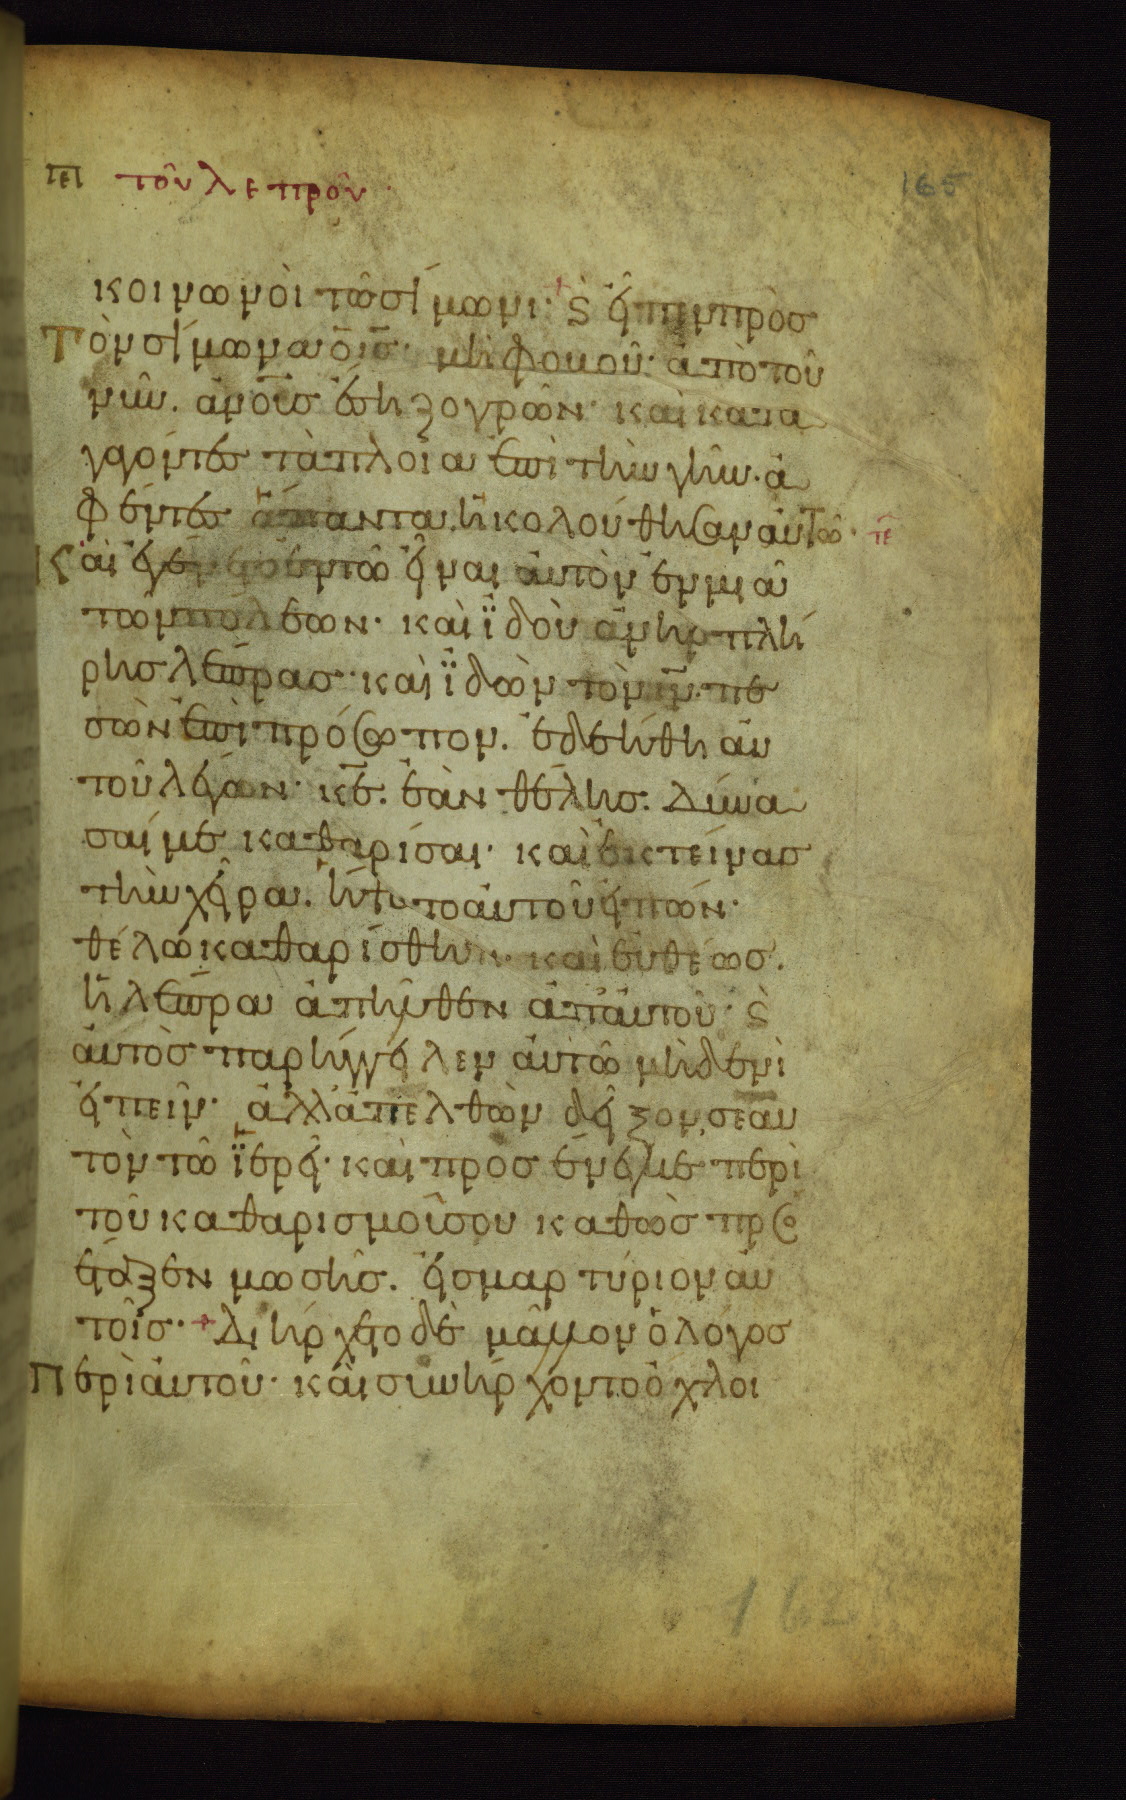 ιει τοῦ λεπροῦ
165
κοινωνοὶ τῶ σίμωνι· ϛ̀ εἶπεν πρὸσ
Τὸν σίμωνα ὁ ισ̅· μὴ φοβοῦ· ἀπὸ τοῦ
νῦν. ἀνουσ̅ ἔση ζογρῶν· καὶ κατα
γαγόντεσ τὰ πλοῖα ἐπὶ τὴν γῆν· ἀ
φέντεσ ἅπαντα, ἠκολούθησαν αὐτῶ·
Καὶ ἐγένετο ἐν τῶ εἶναι αὐτὸν ἐν μιᾶ
τῶν πόλεων· καὶ ἰ̈δοὺ ἀνὴρ πλή
ρησ λέπρασ· καὶ ἰ̈δὼν τὸν ιν̅· πε
σὼν ἐπὶ πρόσωπον. ἐδεήθη αὐ
τοῦ λέγων· κε̅. ἐὰν θέλησ. Δύνα
σαί με καθαρίσαι· καὶ ἐκτείνασ
τὴν χεῖρα. ἥψατο αὐτοῦ εἰπών·
θέλω καθαρίσθητι· καὶ εὐθέωσ.
ἡ λέπρα ἀπῆλθεν ἀπ' αὐτοῦ· ϛ̀
αὐτὸσ παρήγγειλεν αὐτῶ μηδενὶ
εἰπεῖν· ἀλλὰ ἀπελθὼν δεῖξον, σεαυ
τὸν τῶ ἱ̈ερεῖ· καὶ προσένεγκε περὶ
τοῦ καθαρισμοῦ σου καθὼσ προσ
έταξεν μωσῆσ. εἰσ μαρτύριον αὐ
τοῖσ· Διήρχετο δὲ μᾶλλον ὁ λόγοσ
Περὶ αὐτοῦ· καὶ συνήρχοντο ὄχλοι
162